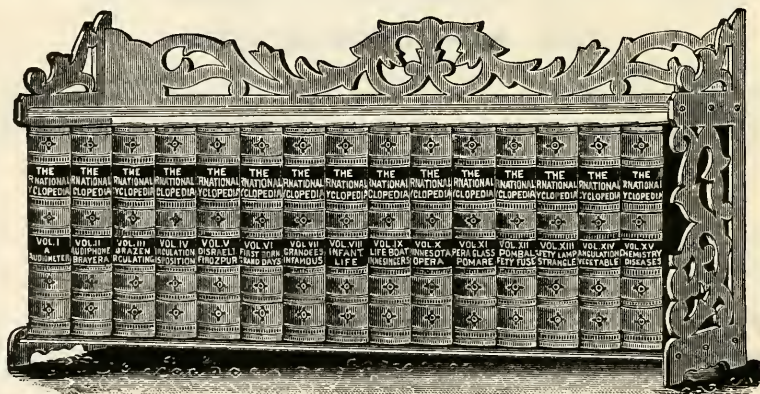 THE
RNATIONAL
YCLOPEDIA
VOL.I
A
AUDIOMETER
THE
RNATIONAL
CLOPEDIA
VOL.II
AUDIPHONE
BRAYERA
THE
RNATIONAL
YCLOPEDIA
VOL.III
BRAZEN
RCULATING
THE
RNATIONAL
YCLOPEDIA
VOL IV
RCULATION
SPOSITION
THE
RNATIONAL
CLOPEDIA
VOL.V
DISRAELI
FIROZPUR
THE
RNATIONAL
YCLOPEDIA
VOL.VI
FIRST BORN
GRAND DAYS
THE
RNATIONAL
YCLOPEDIA
VOL VII
GRANDEES
INFAMOUS
THE
RNATIONAL
YCLOPEDIA
VOL.VIII
INFANT
LIFE
THE
RNATIONAL
CLOPEDIA
VOL.IX
LIFE BOAT
NNESINGERS
THE
RNATIONAL
YCLOPEDIA
VOL X
MINNESOTA
OPERA
THE
RNATIONAL
YCLOPEDIA
VOL.XI
PERA GLASS
POMARE
THE
RNATIONAL
YCLOPEDIA
VOL.XII
POMBAL
FETY FUSE
THE
RNATIONAL
YCLOPEDIA
VOL.XIII
FETY LAMP
STRANGLE
THE
RNATIONAL
YCLOPEDIA
VOL.XIV
ANGULATION
VEGETABLE
THE
RNATIONAL
YCLOPEDIA
VOL.XV
HEMISTRY
DISEASES